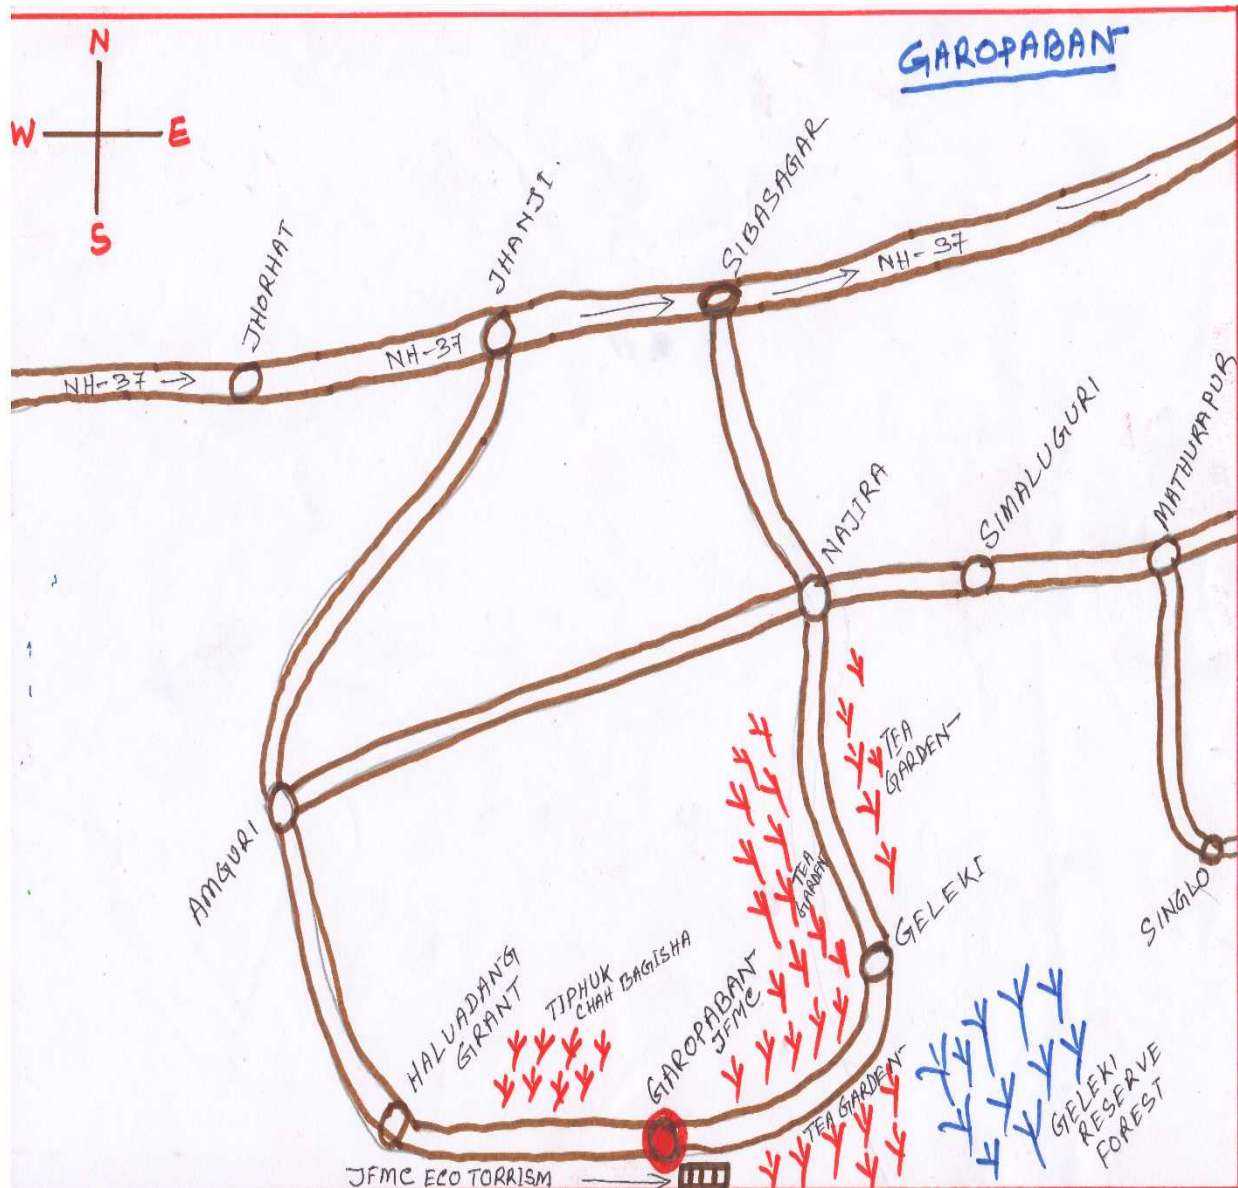 GAROPABAN
N
W
E
S
JHORHAT
JHANJI.
SIBASAGAR
NH-37
NH-37
NH-37
NAJIRA
SIMALUGURI
MATHURAPUR
TEA
GARDEN
TEA
GARDEN
AMGURI
GELEKI
SINGLO
HALUADANG
GRANT
TIPHUK
CHAH BAGISHA
GAROPABAN
JFMC
TEA GARDEN
GELEKI
RESERVE
FOREST
JFMC ECO TORRISM